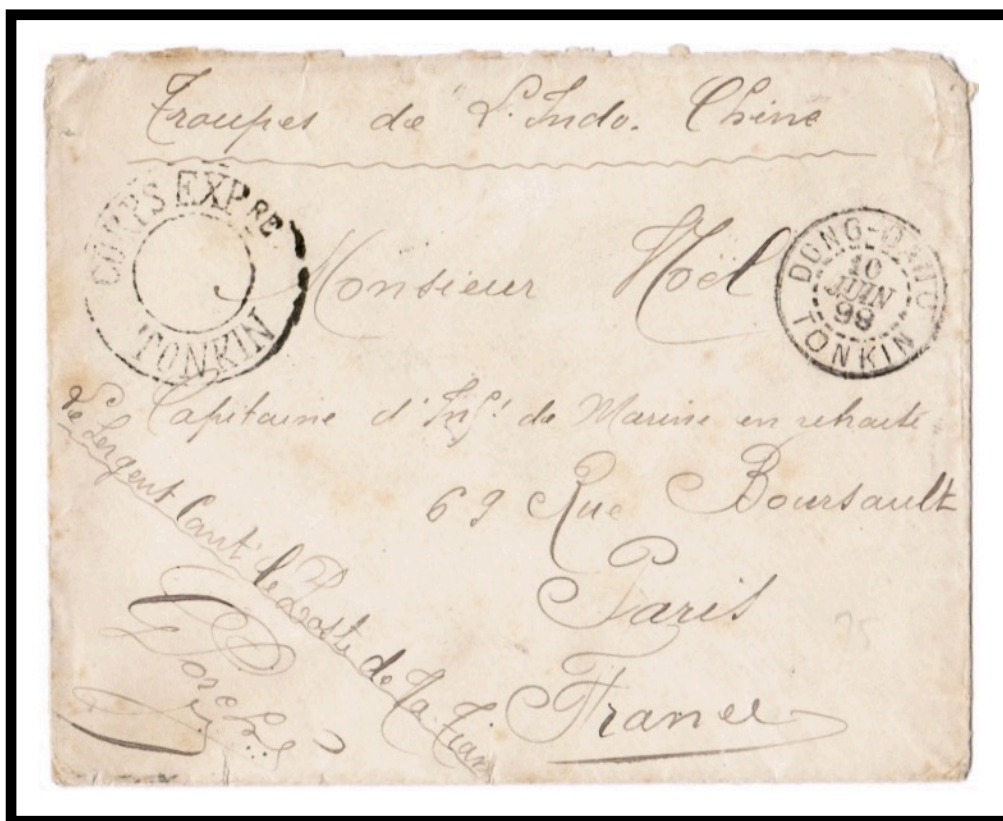 Troupes de L'Indo. Chine
CORPS EXPRE
TONKIN
DONG-DANG
10
JUIN
99
TONKIN
Monsieur Noël
Capitaine d'Inf.t de Marine en retraite
69 Rue Boursault
Paris
France
Le Sergent Comt le Poste de Na
95